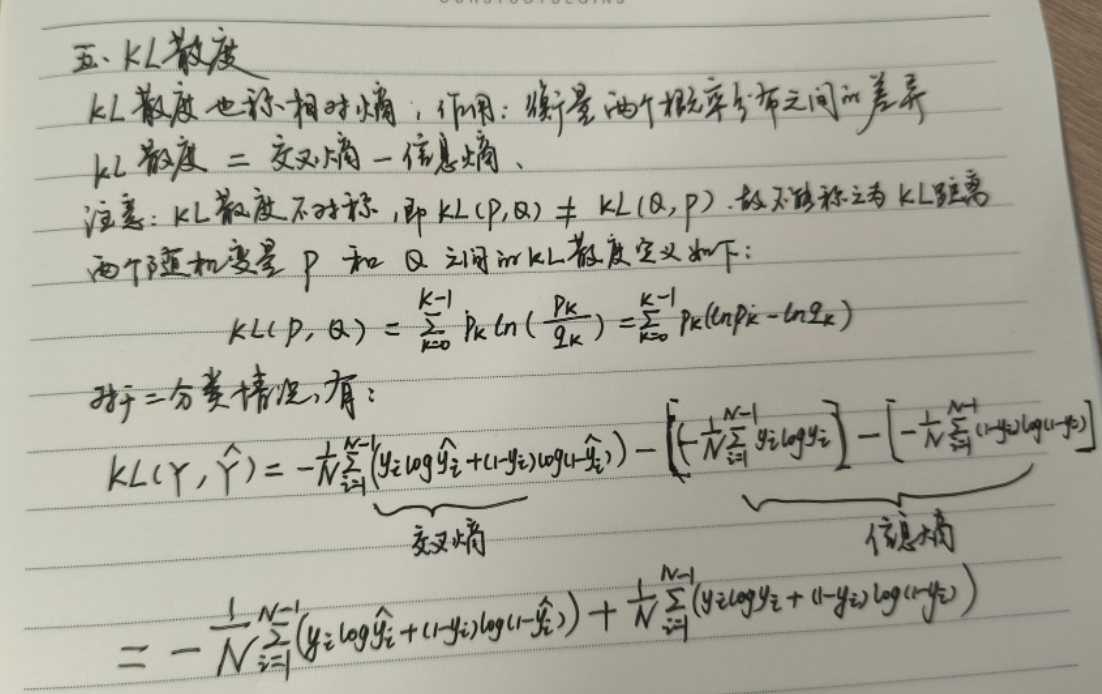 五、KL散度
KL散度也称相对熵，作用：衡量两个概率分布之间的差异
KL散度 = 交叉熵 - 信息熵、
注意：KL散度不对称，即KL(P,Q) ≠ KL(Q,P)．故不能称之为KL距离
两个随机变量 P 和 Q 之间的KL散度定义如下：
KL(P, Q) = \sum_{k=0}^{K-1} p_k ln(\frac{p_k}{q_k}) = \sum_{k=0}^{K-1} p_k(ln p_k - ln q_k)
对于二分类情况，有：
KL(Y, \hat{Y}) = -\frac{1}{N}\sum_{i=1}^{N-1}(y_i log\hat{y}_i + (1-y_i)log(1-\hat{y}_i)) - [(-\frac{1}{N}\sum_{i=1}^{N-1} y_i log y_i] - [-\frac{1}{N}\sum_{i=1}^{N-1}(1-y_i)log(1-y_i)]
交叉熵 信息熵
= -\frac{1}{N}\sum_{i=1}^{N-1}(y_i log\hat{y}_i + (1-y_i)log(1-\hat{y}_i)) + \frac{1}{N}\sum_{i=1}^{N-1}(y_i log y_i + (1-y_i)log(1-y_i))